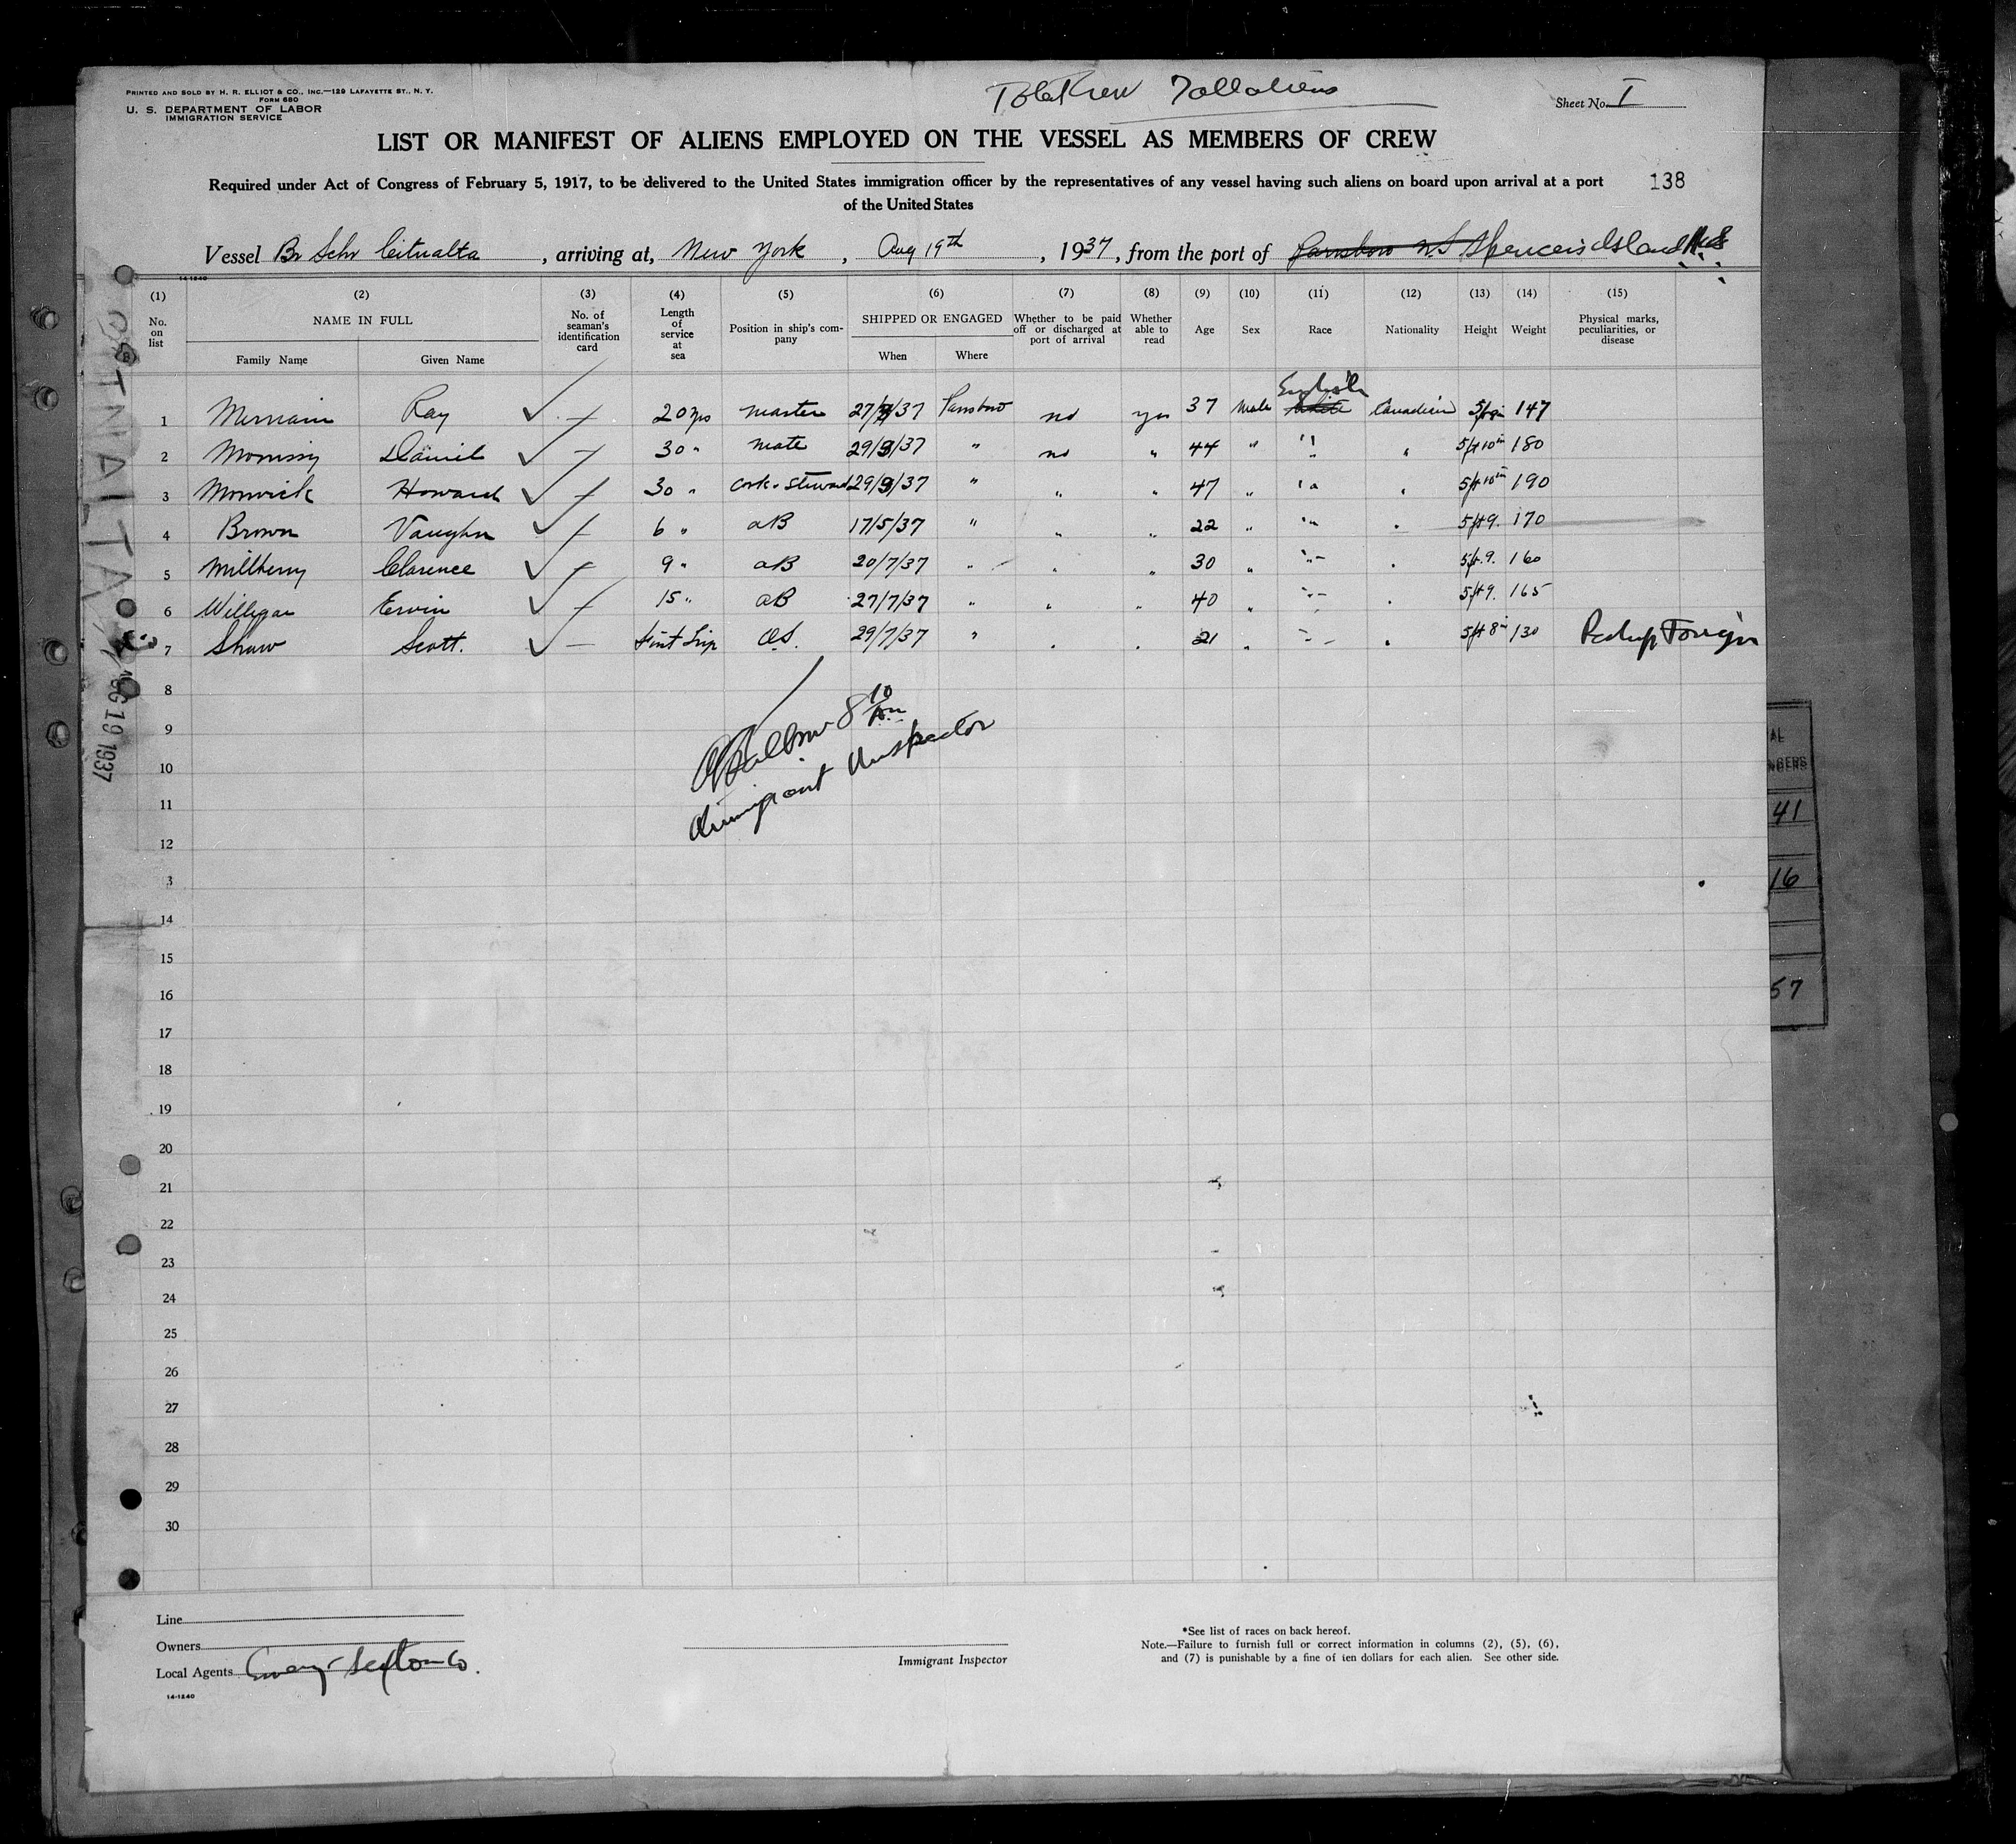 PRINTED AND SOLD BY H. R. ELLIOT & CO., INC.—129 LAFAYETTE ST., N. Y.
FORM 680
U. S. DEPARTMENT OF LABOR
IMMIGRATION SERVICE
Total Crew 7 all aliens
Sheet No. I
LIST OR MANIFEST OF ALIENS EMPLOYED ON THE VESSEL AS MEMBERS OF CREW
Required under Act of Congress of February 5, 1917, to be delivered to the United States immigration officer by the representatives of any vessel having such aliens on board upon arrival at a port
of the United States
138
Vessel Br Schr Citnalta, arriving at, New York, Aug 19th, 1937, from the port of Parrsboro N.S Spencers Island N.S.
14-1240
(1) (2) (3) (4) (5) (6) (7) (8) (9) (10) (11) (12) (13) (14) (15)
No. on list
NAME IN FULL
Family Name Given Name
No. of seaman's identification card
Length of service at sea
Position in ship's company
SHIPPED OR ENGAGED
When Where
Whether to be paid off or discharged at port of arrival
Whether able to read
Age Sex Race Nationality Height Weight
Physical marks, peculiarities, or disease
English
1 Merriam Ray 20 yrs master 27/7/37 Parrsboro no yes 37 Male white Canadian 147
2 Daniel 30 " mate 29/ /37 " no " 44 " " " 5ft10in 180
3 Howard 30 " cook & steward 29/ /37 " " " 47 " " " 5ft10in 190
4 Brown Vaughn 6 " aB 17/5/37 " " " 22 " " " 5ft9. 170
5 Millberry Clarence 9 " aB 20/7/37 " " " 30 " " " 5ft.9. 160
6 Willigar Ervin 15 " aB 27/7/37 " " " 40 " " " 5ft9. 165
7 Shaw Scott. First Trip O.S. 29/7/37 " " " 21 " " " 5ft8in 130 Foreign
8
9
10
11
12
3
14
15
16
17
18
19
20
21
22
23
24
25
26
27
28
29
30
8 10 Am
Immigrant Inspector
CITNALTA
AUG 19 1937
41
16
57
Line
Owners
Local Agents
Immigrant Inspector
14-1240
*See list of races on back hereof.
Note.—Failure to furnish full or correct information in columns (2), (5), (6),
and (7) is punishable by a fine of ten dollars for each alien. See other side.